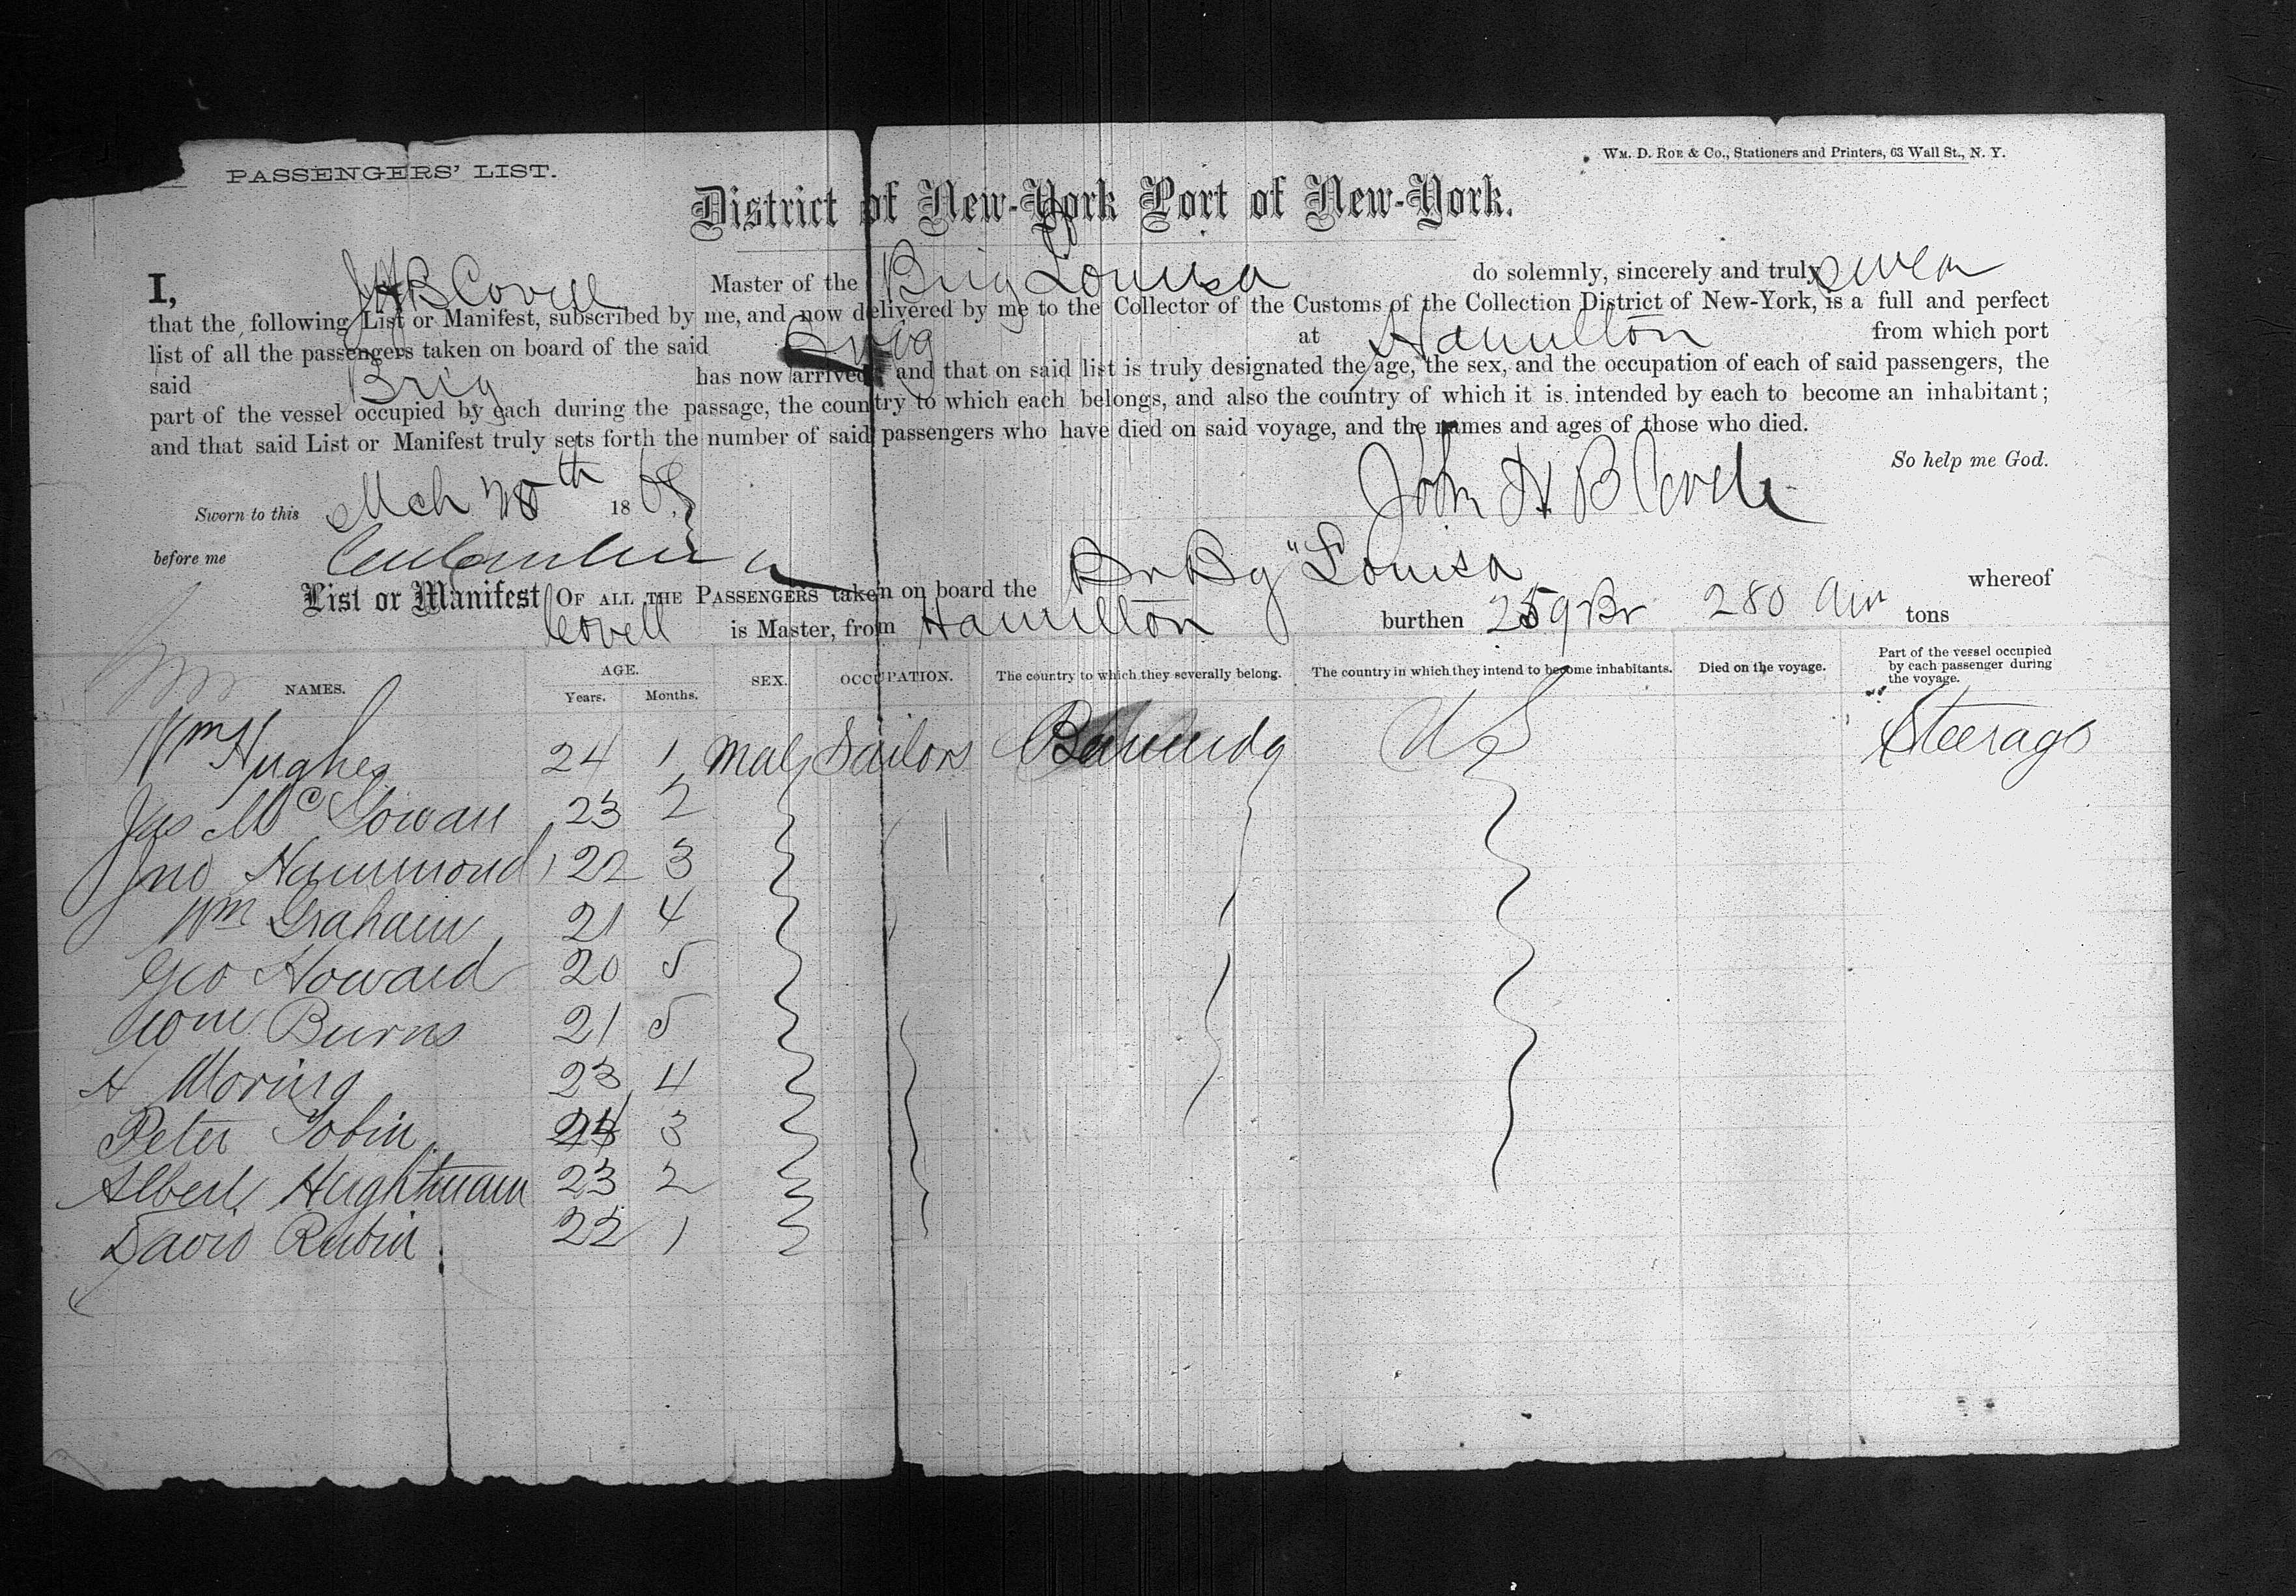 PASSENGERS' LIST.
WM. D. ROE & CO., Stationers and Printers, 63 Wall St., N. Y.
District of New-York Port of New-York.
I, J H B Covell Master of the Brig Louisa do solemnly, sincerely and truly swear
that the following List or Manifest, subscribed by me, and now delivered by me to the Collector of the Customs of the Collection District of New-York, is a full and perfect
list of all the passengers taken on board of the said Brig at Hamilton from which port
said Brig has now arrived; and that on said list is truly designated the age, the sex, and the occupation of each of said passengers, the
part of the vessel occupied by each during the passage, the country to which each belongs, and also the country of which it is intended by each to become an inhabitant;
and that said List or Manifest truly sets forth the number of said passengers who have died on said voyage, and the names and ages of those who died.
So help me God.
Sworn to this Mch th 1868 John H B Covell
before me
List or Manifest OF ALL THE PASSENGERS taken on board the Br Bg "Louisa whereof
Covell is Master, from Hamilton burthen 259 Br 280 Am tons
NAMES. AGE. Years. Months. SEX. OCCUPATION. The country to which they severally belong. The country in which they intend to become inhabitants. Died on the voyage. Part of the vessel occupied by each passenger during the voyage.
Wm Hughes 24 1 Male Sailors Bermuda U S Steerage
Jas McGowan 23 2
Jno Hammond 22 3
Wm Graham 21 4
Geo Howard 20 5
Wm Burns 21 5
H Moring 23 4
Peter Tobin 24 3
Albert Hightman 23 2
David Rubin 22 1